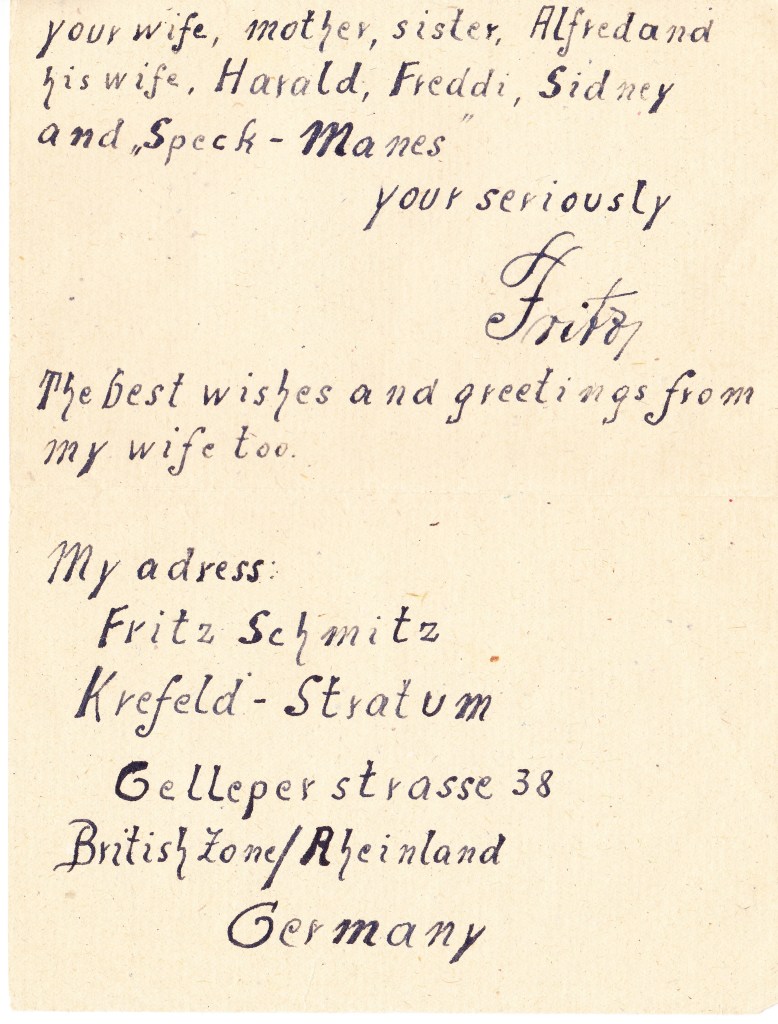 your wife, mother, sister, Alfred and
his wife, Harald, Freddi, Sidney
and „Speck - Manes"
your seriously
Fritz
The best wishes and greetings from
my wife too.
My adress:
Fritz Schmitz
Krefeld - Stratum
Gelleper strasse 38
British Zone/Rheinland
Germany